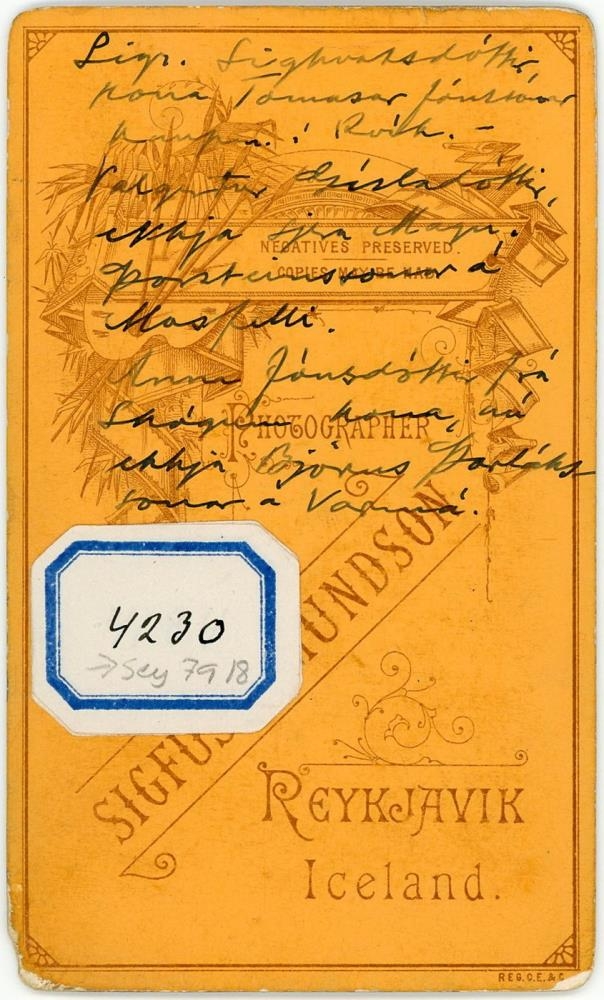 Sigr. Sighvatsdóttir,
kona Tómasar Jónssonar
kaupm. í Rvík. -
Valgerður Gísladóttir,
ekkja séra Magn.
Þorsteinssonar á
Mosfelli.
Anna Jónsdóttir frá
kona, nú
ekkja Björns Þorláks
sonar á Varmá.
NEGATIVES PRESERVED.
COPIES MAY BE HAD.
PHOTOGRAPHER
SIGFUS MUNDSON
4230
→ Sey 7918
REYKJAVIK
Iceland.
REG. C.E. & C.